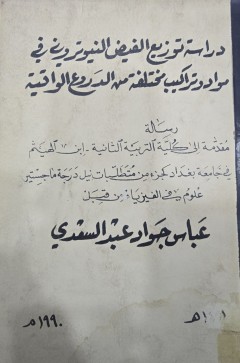 دراسة توزيع الفيض النيوتروني في
مواد وتراكيب مختلفة من الدروع الواقية
رسالة
مقدمة الى كلية التربية الثانية - ابن الهيثم
في جامعة بغداد كجزء من متطلبات نيل درجة ماجستير
علوم في الفيزياء من قبل
عباس جواد عبد السعدي
١٩٩٠م